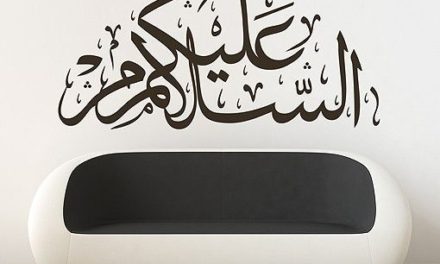 السَّلام عَلَيكم